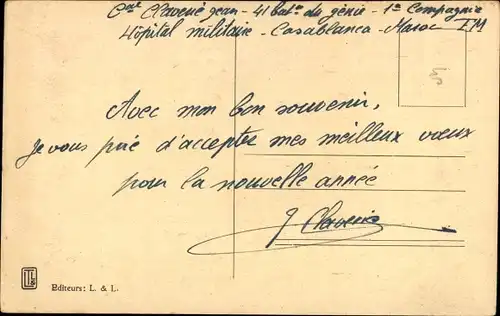 Cal Claverié Jean - 41 Bat.on du génie - 1e Compagnie
Hôpital militaire - Casablanca - Maroc EM
Avec mon bon souvenir,
je vous prie d'accepter mes meilleux vœux
pour la nouvelle année
J Claverié
Editeurs: L. & L.